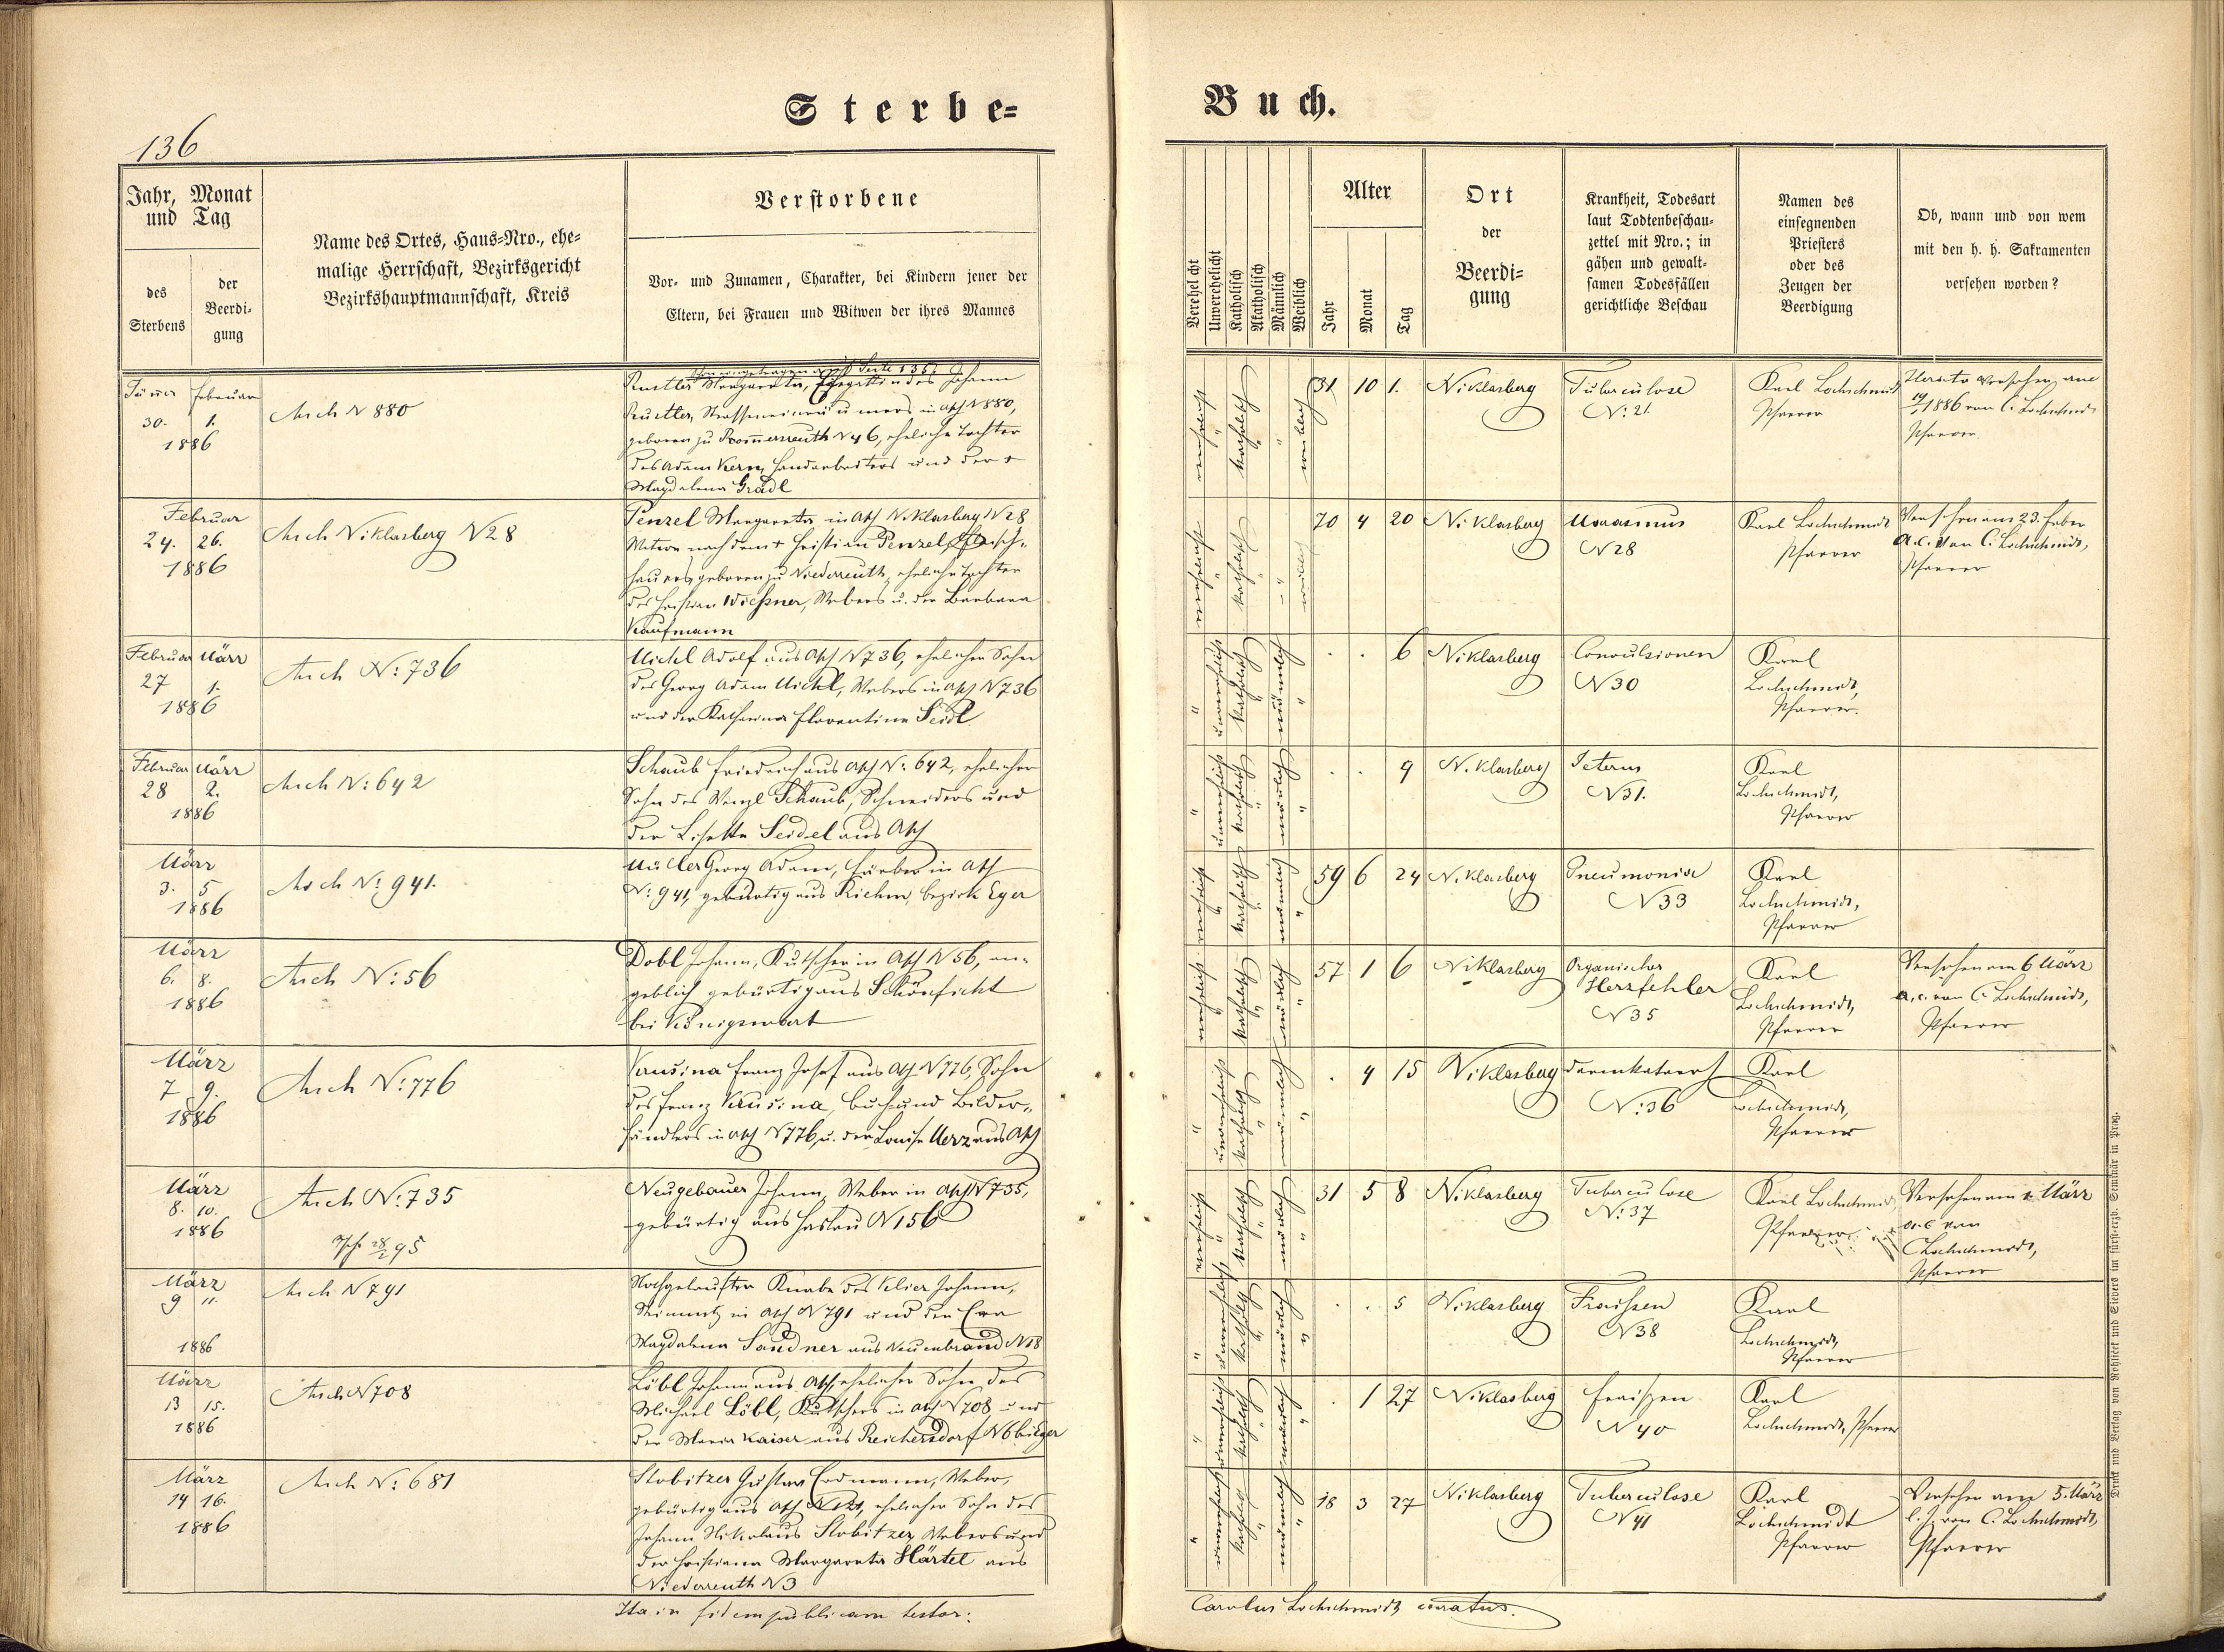 136
Sterbe=
Buch.
Jahr, Monat
und Tag
des
Sterbens
der
Beerdi-
gung
Name des Ortes, Haus-Nro., ehe-
malige Herrschaft, Bezirksgericht
Bezirkshauptmannschaft, Kreis
Verstorbene
Vor- und Zunamen, Charakter, bei Kindern jener der
Eltern, bei Frauen und Witwen der ihres Mannes
Verehelicht
Unverehelicht
Katholisch
Akatholisch
Männlich
Weiblich
Alter
Jahr
Monat
Tag
Ort
der
Beerdi-
gung
Krankheit, Todesart
laut Todtenbeschau-
zettel mit Nro.; in
gähen und gewalt-
samen Todesfällen
gerichtliche Beschau
Namen des
einsegnenden
Priesters
oder des
Zeugen der
Beerdigung
Ob, wann und von wem
mit den h. h. Sakramenten
versehen worden?
Jänner Februar
30. 1.
1886
Asch N 880
Margaretha, Ehegattin des Johann
in Asch N 880,
geboren zu Rommersreuth N 46, eheliche Tochter
des Adam Kern, Handarbeiters und der +
Magdalena Grädl
verehelicht
katholisch
weiblich
31 10 1.
Niklasberg
Tuberculose
N: 21
Karl Lochschmidt
Pfarrer
versehen am
19/1 1886 von C. Lochschmidt
Pfarrer.
Februar
24. 26.
1886
Asch Niklasberg N 28
Penzel Margaretha, in Asch Niklasberg N 28
Witwe nach dem + Christian Penzel, Fleisch-
hauers, geboren zu Niederreuth, eheliche Tochter
des Christian Wießner, Webers u. der Barbara
Kaufmann
verehelicht
katholisch
weiblich
70 4 20
Niklasberg
Marasmus
N 28
Karl Lochschmidt
Pfarrer
Versehen am 23. Feber
a. c. von C. Lochschmidt,
Pfarrer
Februar März
27 1.
1886
Asch N: 736
Michl Adolf aus Asch N 736, ehelicher Sohn
des Georg Adam Michl, Webers in Asch N 736
und der Katharina Florentine Seidl
unverehelicht
katholisch
männlich
. . 6
Niklasberg
Convulsionen
N 30
Karl
Lochschmidt,
Pfarrer.
Februar März
28 2.
1886
Asch N: 642
Schaub Friedrich aus Asch N: 642, ehelicher
Sohn des Wenzl Schaub, Schneiders und
der Lisette Seidel aus Asch
unverehelicht
katholisch
männlich
. . 9
Niklasberg
Icterus
N 31.
Karl
Lochschmidt,
Pfarrer
März
3. 5
1886
Asch N: 941.
Müller Georg Adam, Färber in Asch
N: 941, gebürtig aus Riehm, bezirk Eger
verehelicht
katholisch
männlich
59 6 24
Niklasberg
Pneumonia
N 33
Karl
Lochschmidt,
Pfarrer
März
6. 8.
1886
Asch N: 56
Dobl Johann, Kutscher in Asch N 56, an-
geblich gebürtig aus Schönficht
bei Königswart
verehelicht
katholisch
männlich
57 1 6
Niklasberg
Organischer
Herzfehler
N 35
Karl
Lochschmidt,
Pfarrer
Versehen am 6 März
a. c. von C. Lochschmidt,
Pfarrer
März
7 9.
1886
Asch N: 776
Krusina Franz Josef aus Asch N 776, Sohn
des Franz Krusina, Buch- und Bilder-
händlers in Asch N 776, u. der Louise Merz aus Asch
unverehelicht
katholisch
männlich
. 4 15
Niklasberg
Darmkatarrh
N: 36
Karl
Lochschmidt,
Pfarrer
März
8. 10.
1886
Asch N: 735
95
Neugebauer Johann, Weber in Asch N 735,
gebürtig aus Haslau N 156
verehelicht
katholisch
männlich
31 5 8
Niklasberg
Tuberculose
N: 37
Karl Lochschmidt,
Pfarrer
Versehen am 2. März
a. c. von
C Lochschmidt,
Pfarrer
März
9 11.
1886
Asch N 791
Nothgetaufter Knabe des Johann,
in Asch N 791 und der Eva
Magdalena Sandner aus Neuenbrand N 18
unverehelicht
katholisch
männlich
. . 5
Niklasberg
Fraißen
N 38
Karl
Lochschmidt,
Pfarrer
März
13 15.
1886
Asch N 708
Löbl Johann aus Asch, ehelicher Sohn des
Michael Löbl, Kutschers in Asch N 708 und
der Maria Kaiser aus Reichersdorf N 6 bei Eger
unverehelicht
katholisch
männlich
. 1 27
Niklasberg
Fraißen
N 40
Karl
Lochschmidt, Pfarrer
März
14 16.
1886
Asch N: 681
Stobitzer Gustav Erdmann, Weber,
gebürtig aus Asch N 121, ehelicher Sohn des
Johann Nikolaus Stobitzer, Webers und
der Christiana Margaretha Härtel aus
Niederreuth N 3
unverehelicht
katholisch
männlich
18 3 27
Niklasberg
Tuberculose
N 41
Karl
Lochschmidt
Pfarrer
Versehen am 5. März
l. J. von C. Lochschmidt,
Pfarrer
Ita in fidem publicam testor:
Carolus Lochschmidt curatus.
Druck und Verlag von Rohliček und Sievers im fürst-erzb. Seminär in Prag.